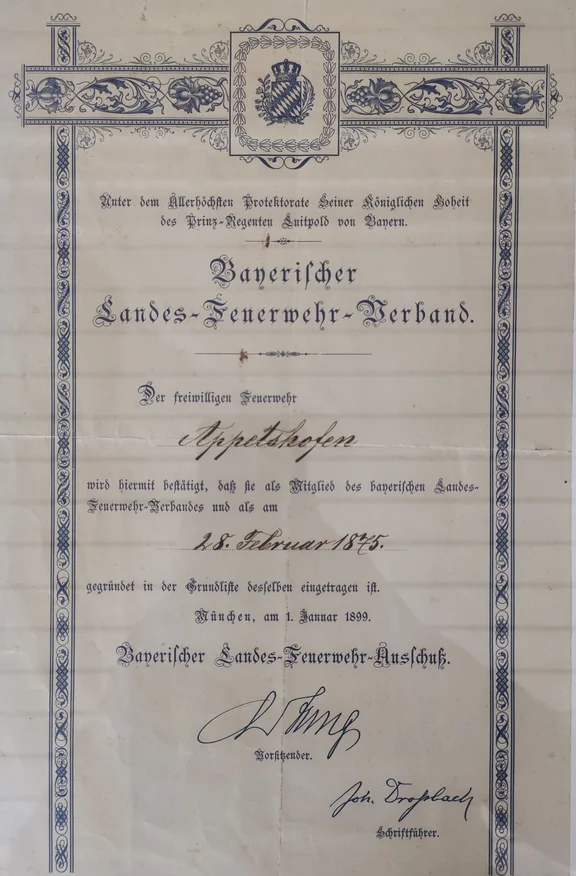 Unter dem Allerhöchsten Protektorate Seiner Königlichen Hoheit
des Prinz-Regenten Luitpold von Bayern.
Bayerischer
Landes-Feuerwehr-Verband.
Der freiwilligen Feuerwehr
Appetshofen
wird hiermit bestätigt, daß sie als Mitglied des bayerischen Landes-
Feuerwehr-Verbandes und als am
28. Februar 1875.
gegründet in der Grundliste desselben eingetragen ist.
München, am 1. Januar 1899.
Bayerischer Landes-Feuerwehr-Ausschuß.
Vorsitzender.
Joh. Droßbach
Schriftführer.